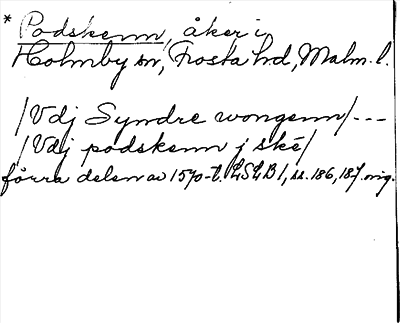 * Podskenn, åker i
Holmby sn, Frosta hd, Malm. l.
/Vdj Syndre wongenn/---
/Vdj podskenn j ské/
förra delen av 1570-t. LSLB 1, ss. 186, 187. orig.